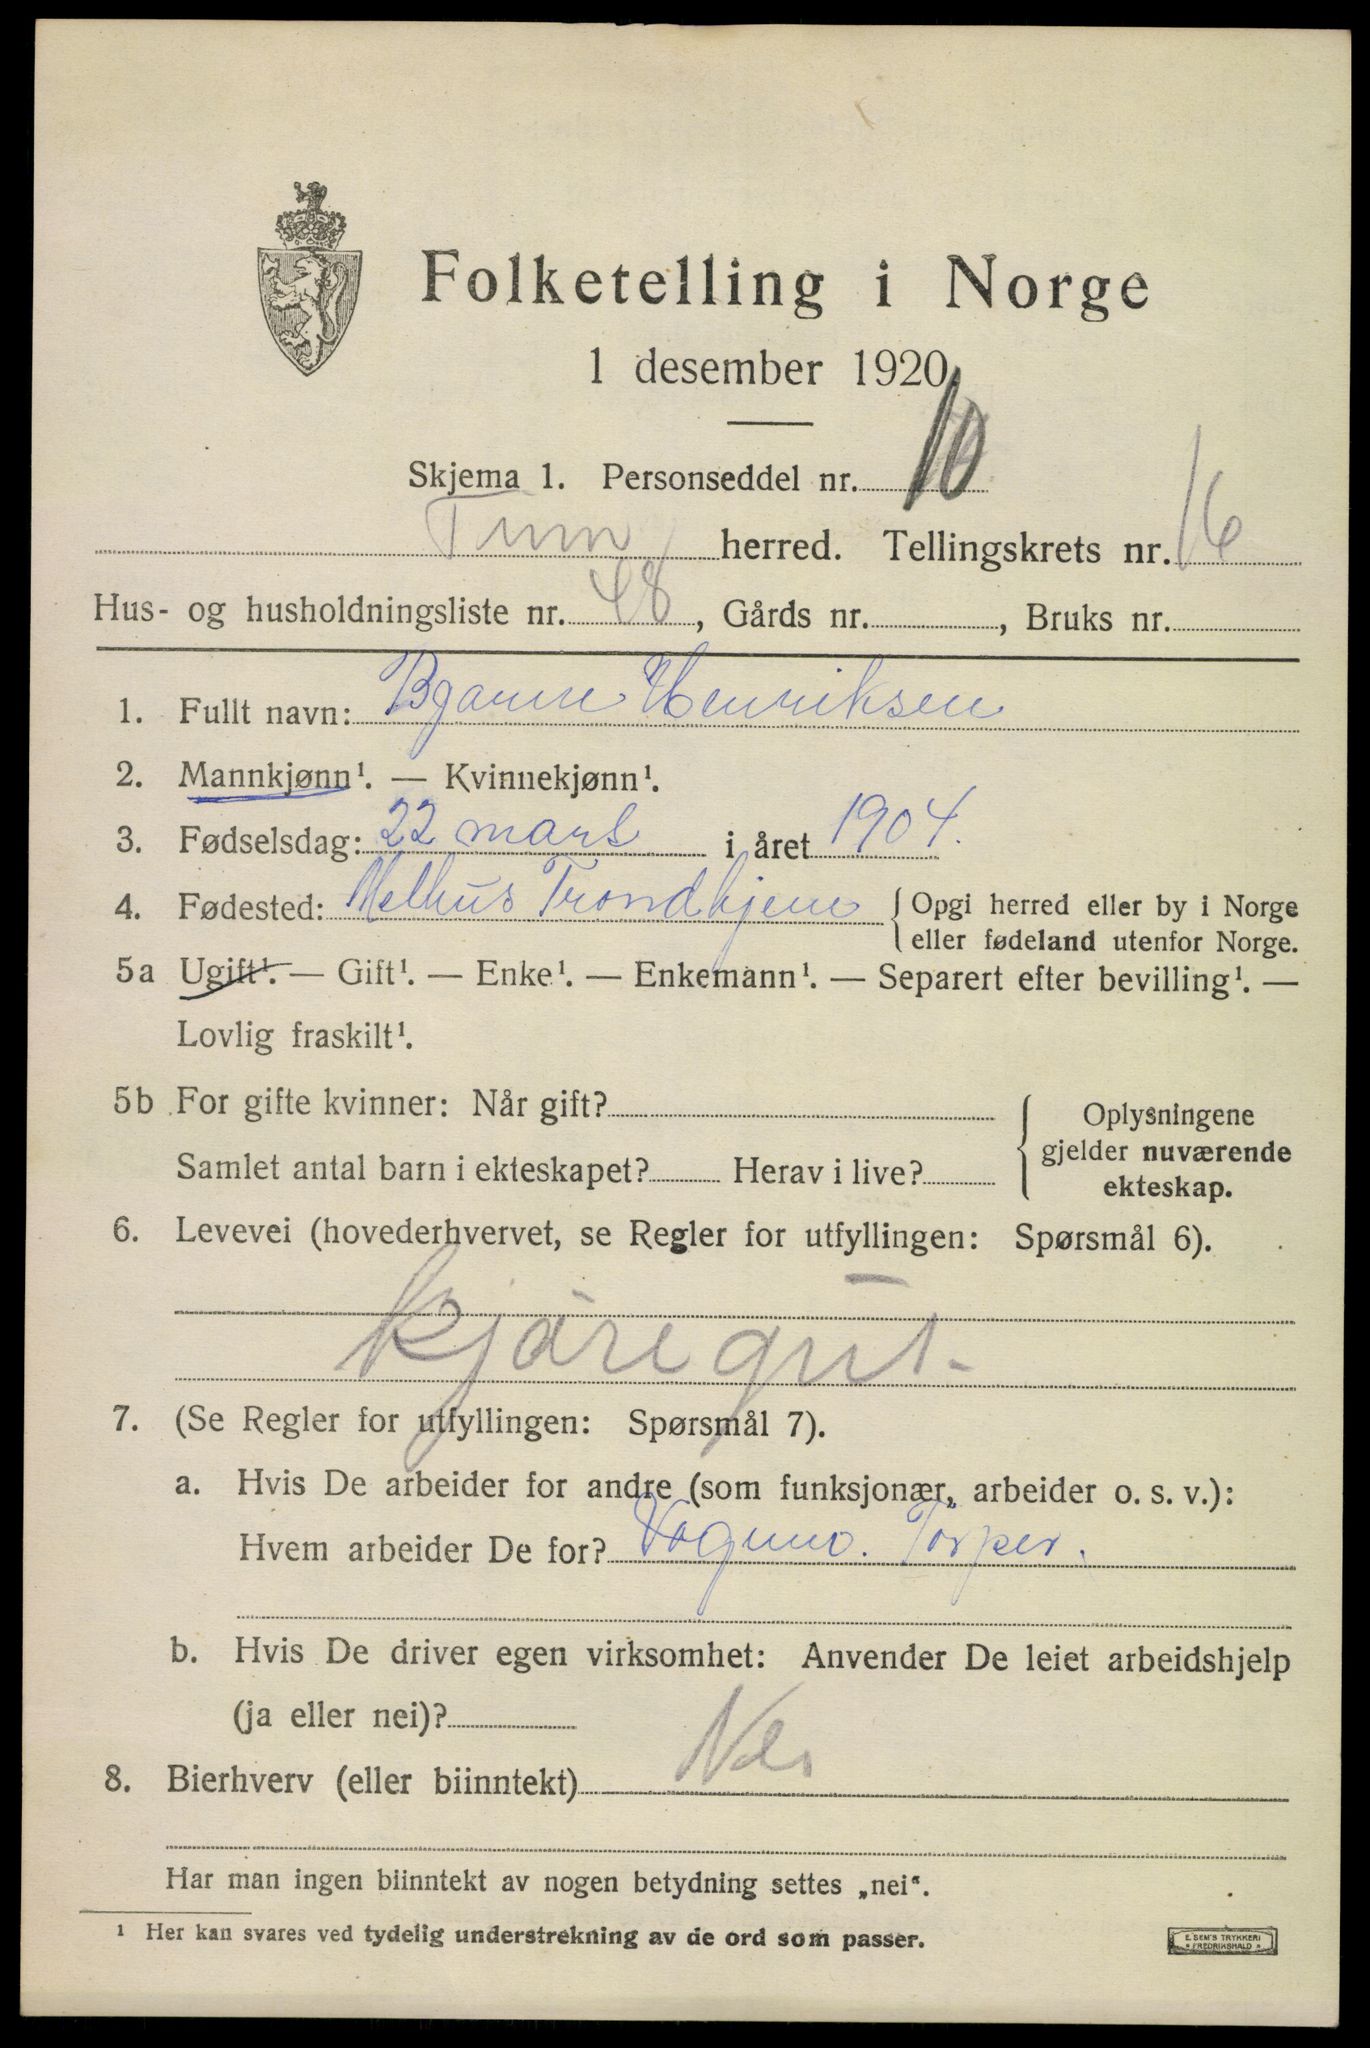 Folketelling i Norge
1 desember 1920
Skjema 1. Personseddel nr. 10
Tune herred. Tellingskrets nr. 16
Hus- og husholdningsliste nr. 48, Gårds nr. , Bruks nr.
1. Fullt navn: Bjarne Henriksen
2. Mannkjønn¹. — Kvinnekjønn¹.
3. Fødselsdag: 22 mars i året 1904.
4. Fødested: Melhus Trondhjem { Opgi herred eller by i Norge
eller fødeland utenfor Norge.
5a Ugift¹. — Gift¹. — Enke¹. — Enkemann¹. — Separert efter bevilling¹. —
Lovlig fraskilt¹.
5b For gifte kvinner: Når gift?
Samlet antal barn i ekteskapet? Herav i live?
Oplysningene
gjelder nuværende
ekteskap.
6. Levevei (hovederhvervet, se Regler for utfyllingen: Spørsmål 6).
kjøregut
7. (Se Regler for utfyllingen: Spørsmål 7).
a. Hvis De arbeider for andre (som funksjonær, arbeider o. s. v.):
Hvem arbeider De for? Torper.
b. Hvis De driver egen virksomhet: Anvender De leiet arbeidshjelp
(ja eller nei)?
8. Bierhverv (eller biinntekt) Nei
Har man ingen biinntekt av nogen betydning settes „nei".
¹ Her kan svares ved tydelig understrekning av de ord som passer.
E. SEM'S TRYKKERI
* FREDRIKSHALD *